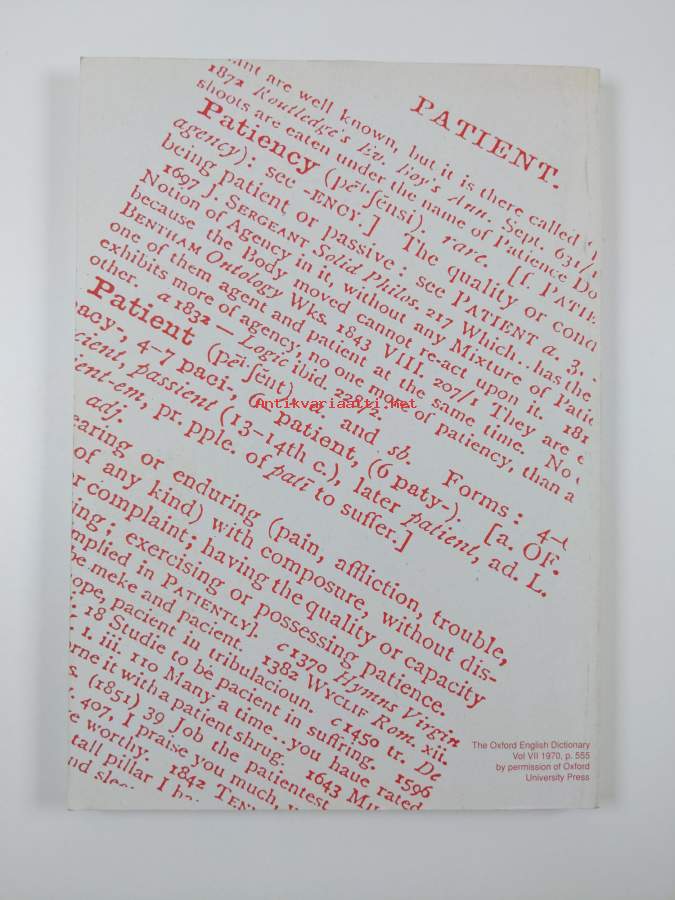 PATIENT.
ant are well known, but it is there called
1872 Routledge's Ev. Boy's Ann. Sept. 631/1
shoots are eaten under the name of Patience Do
Patiency (pēi·ʃĕnsi). rare. [f. PATIE
agency): see -ENCY.] The quality or cond
being patient or passive: see PATIENT a. 3.
1697 J. SERGEANT Solid Philos. 217 Which..has the
Notion of Agency in it, without any Mixture of Patie
because the Body moved cannot re-act upon it. 181
BENTHAM Ontology Wks. 1843 VIII. 207/1 They are
one of them agent and patient at the same time. No
exhibits more of agency, no one more of patiency, than a
other. a 1832 — Logic ibid.
Patient (pēi·ʃĕnt), and sb. Forms: 4-
acy-, 4-7 paci-, 6- patient, (6 paty-). [a. OF.
cient, passient (13-14th c.), later patient, ad. L.
ient-em, pr. pple. of pati to suffer.]
adj.
earing or enduring (pain, affliction, trouble,
of any kind) with composure, without dis-
r complaint; having the quality or capacity
ing; exercising or possessing patience.
mplied in PATIENTLY]. c 1370 Hymns Virgin
be meke and pacient. 1382 WYCLIF Rom. xii.
ope, pacient in tribulacioun. c 1450 tr. De
i. 18 Studie to be pacient in suffring. 1596
I. iii. 110 Many a time..you haue rated
rne it with a patient shrug. 1643
s. (1851) 39 Job the patientest
407, I praise you much,
e worthy. 1842
tall pillar I
nd
Antikvariaatti.net
The Oxford English Dictionary
Vol VII 1970, p. 555
by permission of Oxford
University Press